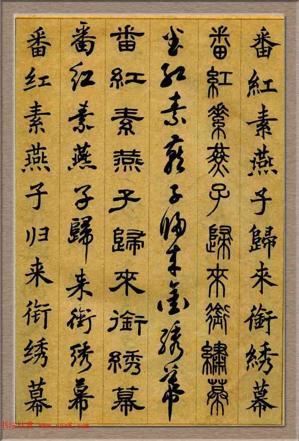 番紅素燕子歸來銜綉幕
番紅素燕子歸來銜繡幕
番红素燕子归来衔绣幕
番紅素燕子歸來銜綉幕
番红素燕子歸来衔绣幕
番红素燕子归来衔绣幕